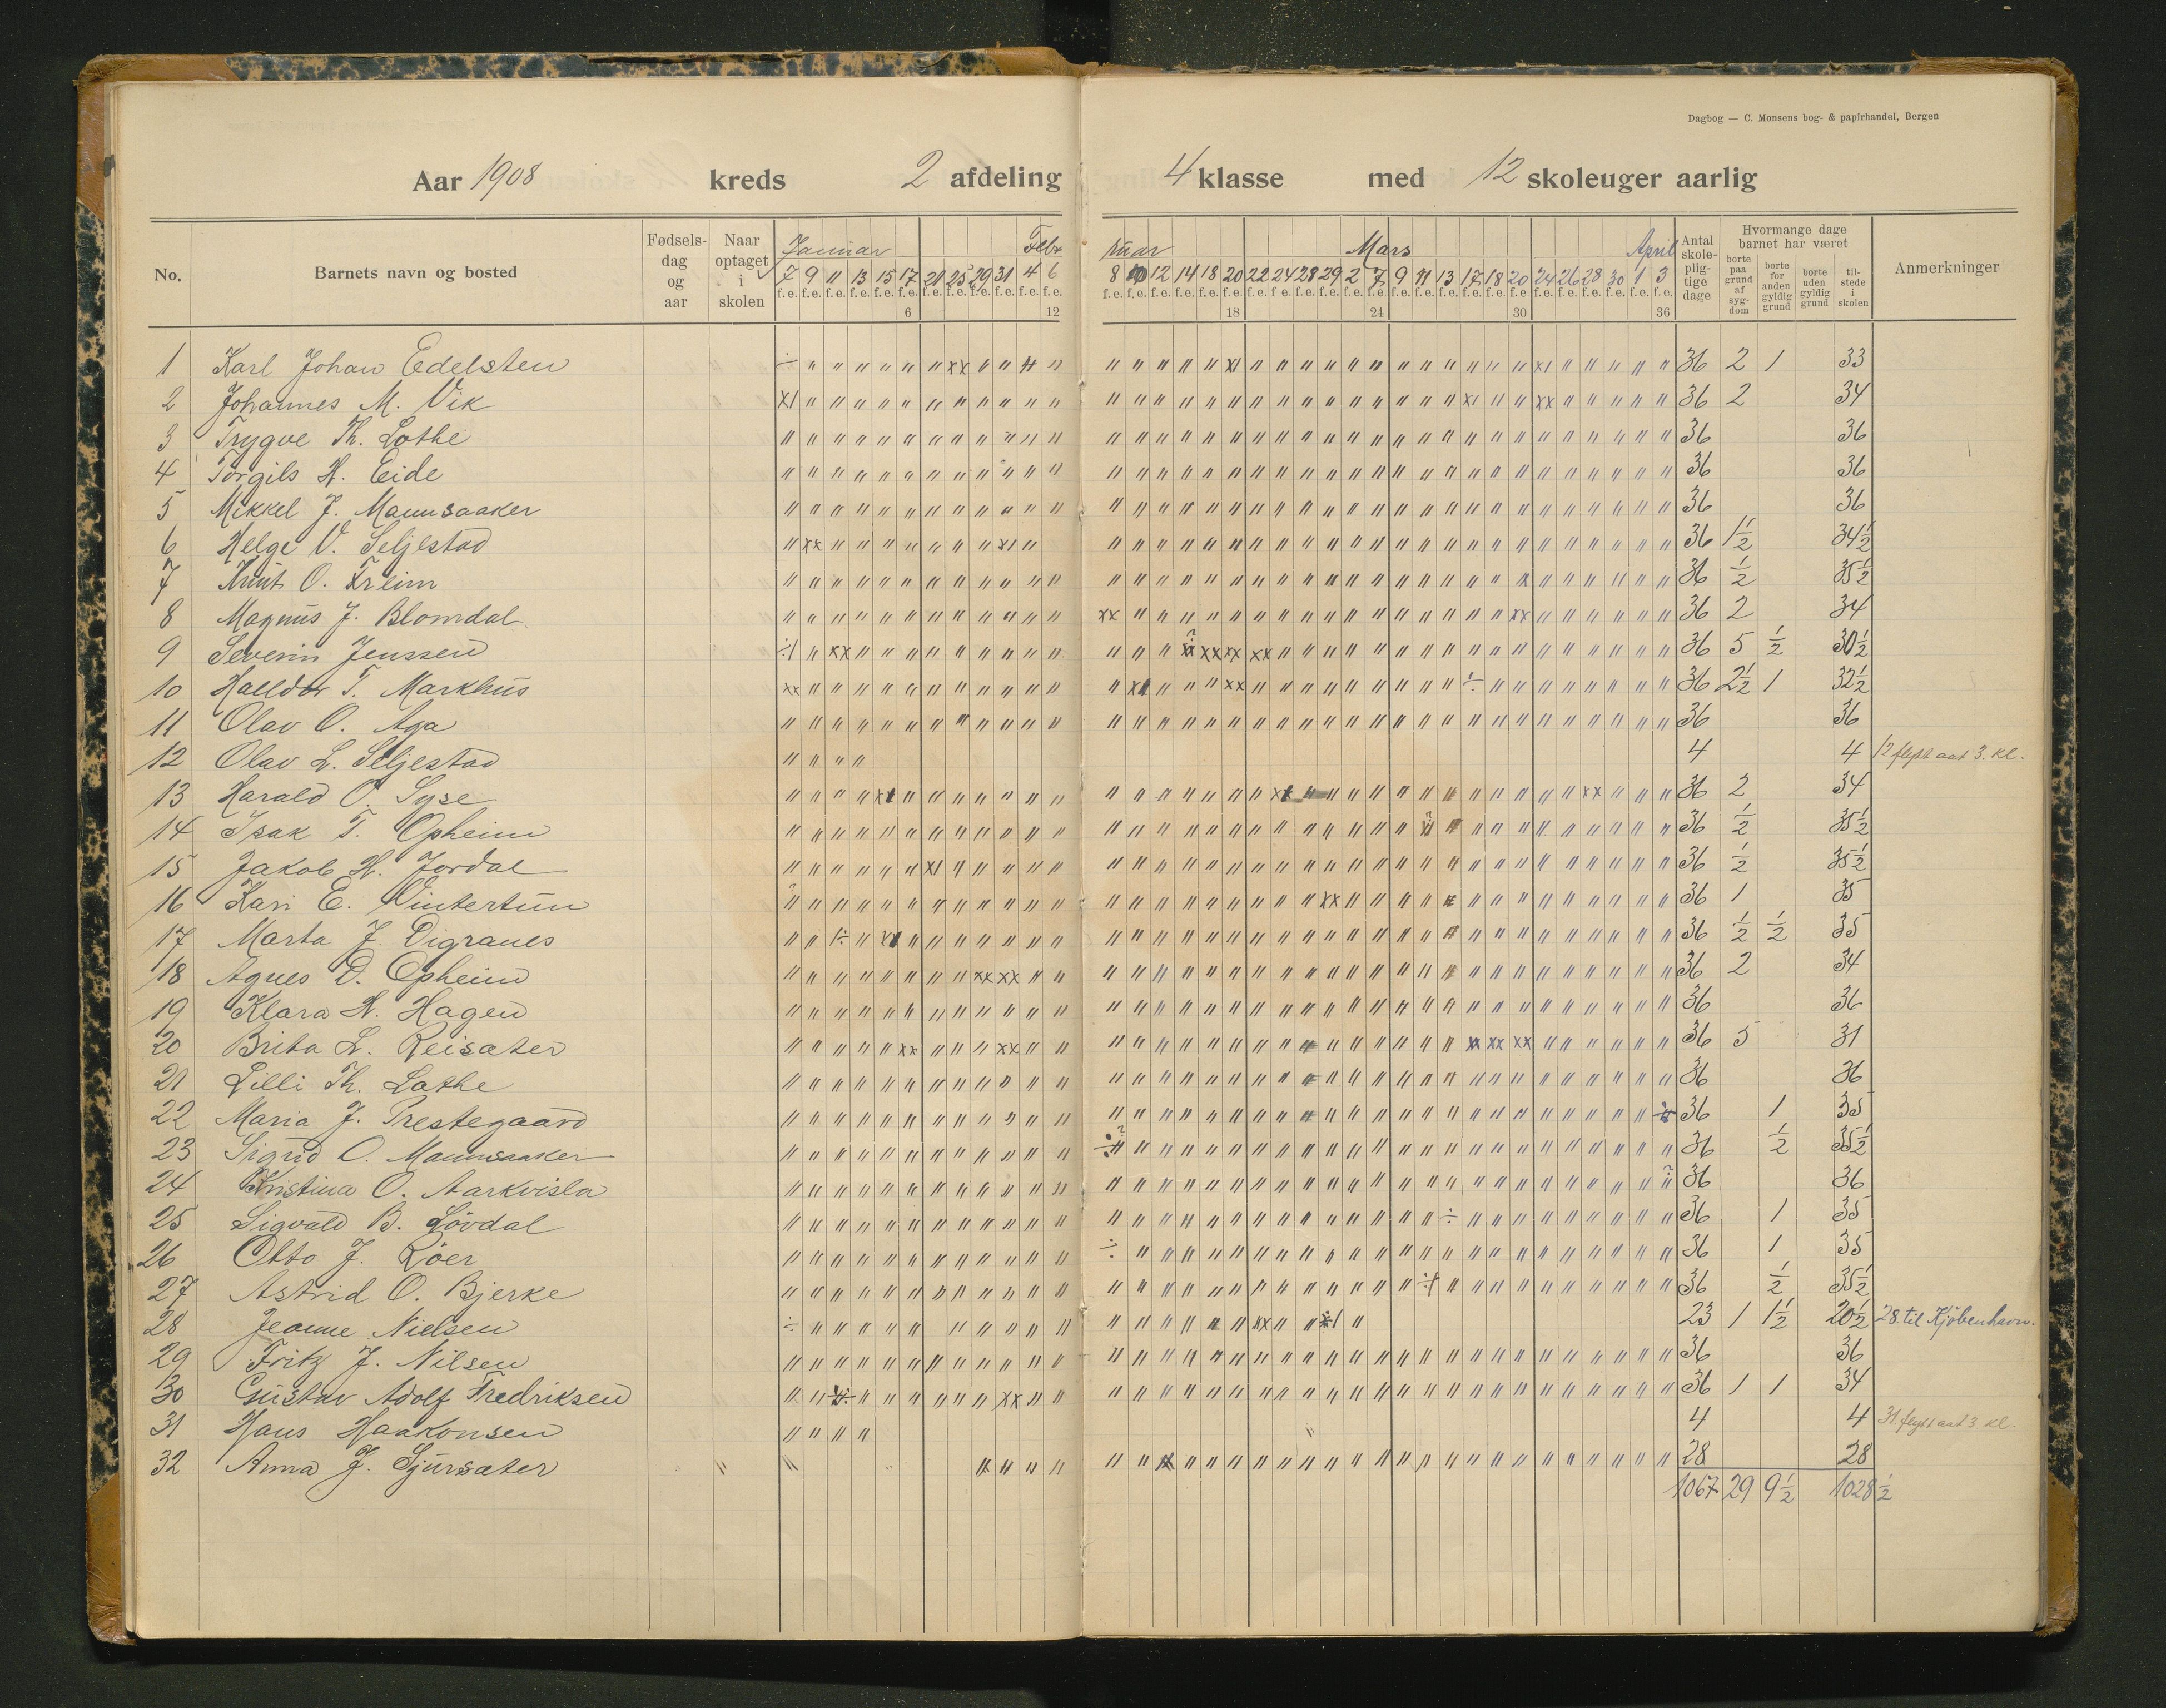 Dagbog — C. Monsens bog- & papirhandel, Bergen
Aar 1908 kreds 2 afdeling 4 klasse med 12 skoleuger aarlig
No. Barnets navn og bosted Fødsels-dag og aar Naar optaget i skolen Januar Febr ruar Mars April Antal skole-plig-tige dage Hvormange dage barnet har været Anmerkninger
borte paa grund af syg-dom borte for anden gyldig grund borte uden gyldig grund til-stede i skolen
7 9 11 13 15 17 21 25 29 31 4 6 8 10 12 14 18 20 22 24 28 29 2 7 9 11 13 17 18 20 24 26 28 30 1 3
f.e. f.e. f.e. f.e. f.e. f.e. f.e. f.e. f.e. f.e. f.e. f.e. f.e. f.e. f.e. f.e. f.e. f.e. f.e. f.e. f.e. f.e. f.e. f.e. f.e. f.e. f.e. f.e. f.e. f.e. f.e. f.e. f.e. f.e. f.e. f.e.
6 12 18 24 30 36
1 Karl Johan Edelsten 36 2 1 33
2 Johannes M. Vik 36 2 34
3 Trygve Th. Lothe 36 36
4 Torgils H. Eide 36 36
5 Mikkel J. Mannsaaker 36 36
6 Helge V. Seljestad 36 1½ 34½
7 Knut O. Freim 36 ½ 35½
8 Magnus J. Blomdal 36 2 34
9 Severin Jenssen 36 5 ½ 30½
10 Halldor T. Markhus 36 2½ 1 32½
11 Olav O. Aga 36 36
12 Olav L. Seljestad 4 4 12 flytt aat 3. kl.
13 Harald O. Syse 36 2 34
14 Isak T. Opheim 36 ½ 35½
15 Jakob H. Jordal 36 ½ 35½
16 Kari E. Vintertun 36 1 35
17 Marta J. Digranes 36 ½ ½ 35
18 Agnes D. Opheim 36 2 34
19 Klara N. Hagen 36 36
20 Brita L. Reisæter 36 5 31
21 Lilli Th. Lothe 36 36
22 Maria J. Prestegaard 36 1 35
23 Sigrid O. Mannsaaker 36 ½ 35½
24 Kristina O. Aarkvisla 36 36
25 Sigvald B. Løvdal 36 1 35
26 Otto J. Røer 36 1 35
27 Astrid O. Bjerke 36 ½ 35½
28 Jeanne Nielsen 23 1 1½ 20½ 28. til Kjøbenhavn.
29 Fritz J. Nilsen 36 36
30 Gustav Adolf Fredriksen 36 1 1 34
31 Hans Haakonsen 4 4 31 flytt aat 3 kl.
32 Anna J. Sjursæter 28 28
1067 29 9½ 1028½